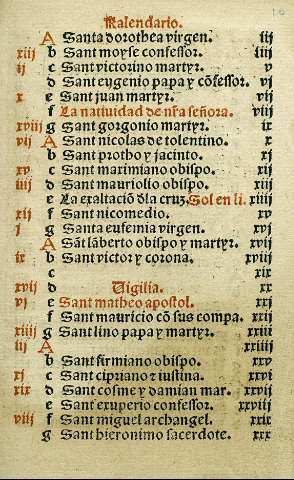 Kalendario.
A Santa dorothea virgen. iij
xiij b Sant moyse confessor. iiij
ij c Sant victorino martyr. v
d Sant eugenio papa y cõfessor. vj
x e Sant juan martyr. vij
f La natiuidad de nr̃a señora. viij
xviij g Sant gorgonio martyr. ix
vij A Sant nicolas de tolentino. x
b Sant protho y jacinto. xj
xv c Sant maximiano obispo. xij
iiij d Sant mauriolio obispo. xiij
e La exaltaciõ d'la cruz. Sol en li. xiiij
xij f Sant nicomedio. xv
j g Santa eufemia virgen. xvj
A Sãt lãberto obispo y martyr. xvij
ix b Sant victor y corona. xviij
c xix
xvij d Uigilia. xx
vj e Sant matheo apostol. xxj
f Sant mauricio cõ sus compa. xxij
xiiij g Sant lino papa y martyr. xxiij
iij A xxiiij
b Sant firmiano obispo. xxv
xj c Sant cipriano ⁊ iustina. xxvj
xix d Sant cosme y damian mar. xxvij
e Sant exuperio confessor. xxviij
viij f Sant miguel archangel. xxix
g Sant hieronimo sacerdote. xxx